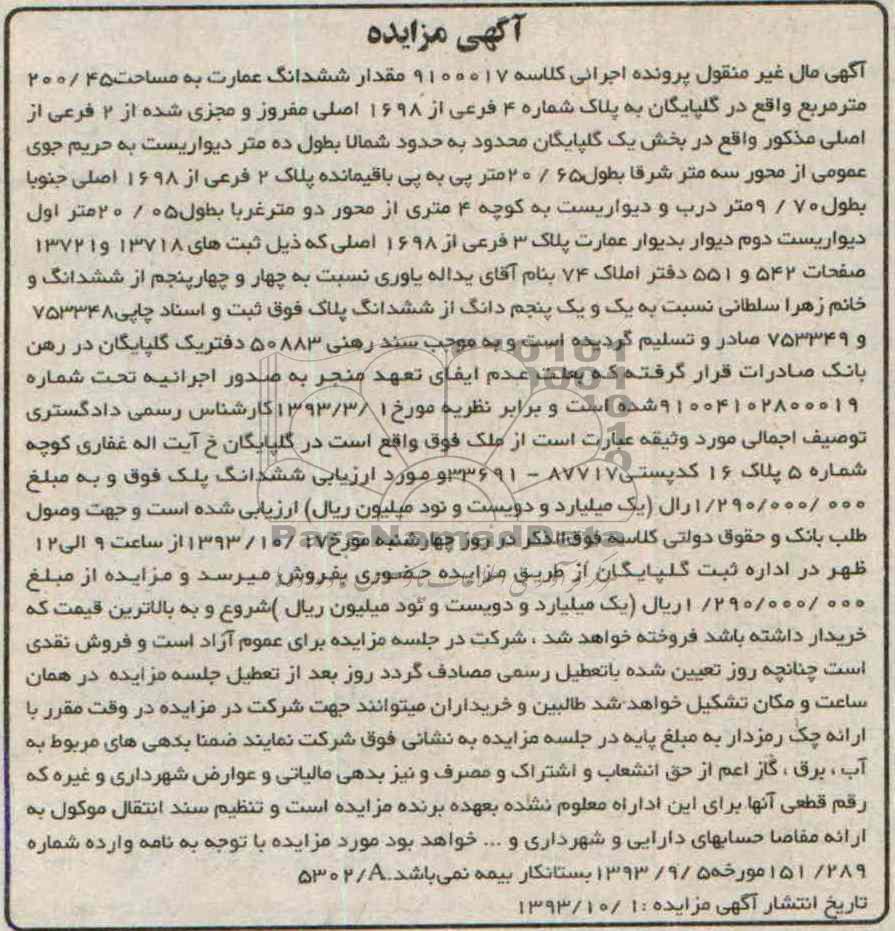 آگهی مزایده
آگهی مال غیر منقول پرونده اجرائی کلاسه ۹۱۰۰۰۱۷ مقدار ششدانگ عمارت به مساحت۲۰۰/۴۵
مترمربع واقع در گلپایگان به پلاک شماره ۴ فرعی از ۱۶۹۸ اصلی مفروز و مجزی شده از ۲ فرعی از
اصلی مذکور واقع در بخش یک گلپایگان محدود به حدود شمالا بطول ده متر دیواریست به حریم جوی
عمومی از محور سه متر شرقا بطول۲۰/۶۵متر پی به پی باقیمانده پلاک ۲ فرعی از ۱۶۹۸ اصلی جنوبا
بطول۹/۷۰متر درب و دیواریست به کوچه ۴ متری از محور دو مترغربا بطول۲۰/۰۵متر اول
دیواریست دوم دیوار بدیوار عمارت پلاک ۳ فرعی از ۱۶۹۸ اصلی که ذیل ثبت های ۱۳۷۱۸ و۱۳۷۲۱
صفحات ۵۴۲ و ۵۵۱ دفتر املاک ۷۴ بنام آقای یداله یاوری نسبت به چهار و چهارپنجم از ششدانگ و
خانم زهرا سلطانی نسبت به یک و یک پنجم دانگ از ششدانگ پلاک فوق ثبت و اسناد چاپی۷۵۳۳۴۸
و ۷۵۳۳۴۹ صادر و تسلیم گردیده است و به موجب سند رهنی ۵۰۸۸۳ دفتریک گلپایگان در رهن
بانک صادرات قرار گرفته که بعلت عدم ایفای تعهد منجر به صدور اجرائیه تحت شماره
۹۱۰۰۴۱۰۲۸۰۰۰۱۹شده است و برابر نظریه مورخ۱۳۹۳/۳/۱کارشناس رسمی دادگستری
توصیف اجمالی مورد وثیقه عبارت است از ملک فوق واقع است در گلپایگان خ آیت اله غفاری کوچه
شماره ۵ پلاک ۱۶ کدپستی۸۷۷۱۷ - ۳۳۶۹۱و مورد ارزیابی ششدانگ پلک فوق و به مبلغ
۱/۲۹۰/۰۰۰/۰۰۰رال (یک میلیارد و دویست و نود میلیون ریال) ارزیابی شده است و جهت وصول
طلب بانک و حقوق دولتی کلاسه فوق‌الذکر در روز چهارشنبه مورخ۱۳۹۳/۱۰/۱۷از ساعت ۹ الی۱۲
ظهر در اداره ثبت گلپایگان از طریق مزایده حضوری بفروش میرسد و مزایده از مبلغ
۱/۲۹۰/۰۰۰/۰۰۰ریال (یک میلیارد و دویست و نود میلیون ریال )شروع و به بالاترین قیمت که
خریدار داشته باشد فروخته خواهد شد ، شرکت در جلسه مزایده برای عموم آزاد است و فروش نقدی
است چنانچه روز تعیین شده باتعطیل رسمی مصادف گردد روز بعد از تعطیل جلسه مزایده در همان
ساعت و مکان تشکیل خواهد شد طالبین و خریداران میتوانند جهت شرکت در مزایده در وقت مقرر با
ارائه چک رمزدار به مبلغ پایه در جلسه مزایده به نشانی فوق شرکت نمایند ضمنا بدهی های مربوط به
آب ، برق ، گاز اعم از حق انشعاب و اشتراک و مصرف و نیز بدهی مالیاتی و عوارض شهرداری و غیره که
رقم قطعی آنها برای این ادااره معلوم نشده بعهده برنده مزایده است و تنظیم سند انتقال موکول به
ارائه مفاصا حسابهای دارایی و شهرداری و ... خواهد بود مورد مزایده با توجه به نامه وارده شماره
۱۵۱/۲۸۹مورخه۱۳۹۳/۹/۵بستانکار بیمه نمی‌باشد.۵۳۰۲/A
تاریخ انتشار آگهی مزایده :۱۳۹۳/۱۰/۱
ParsNamadData